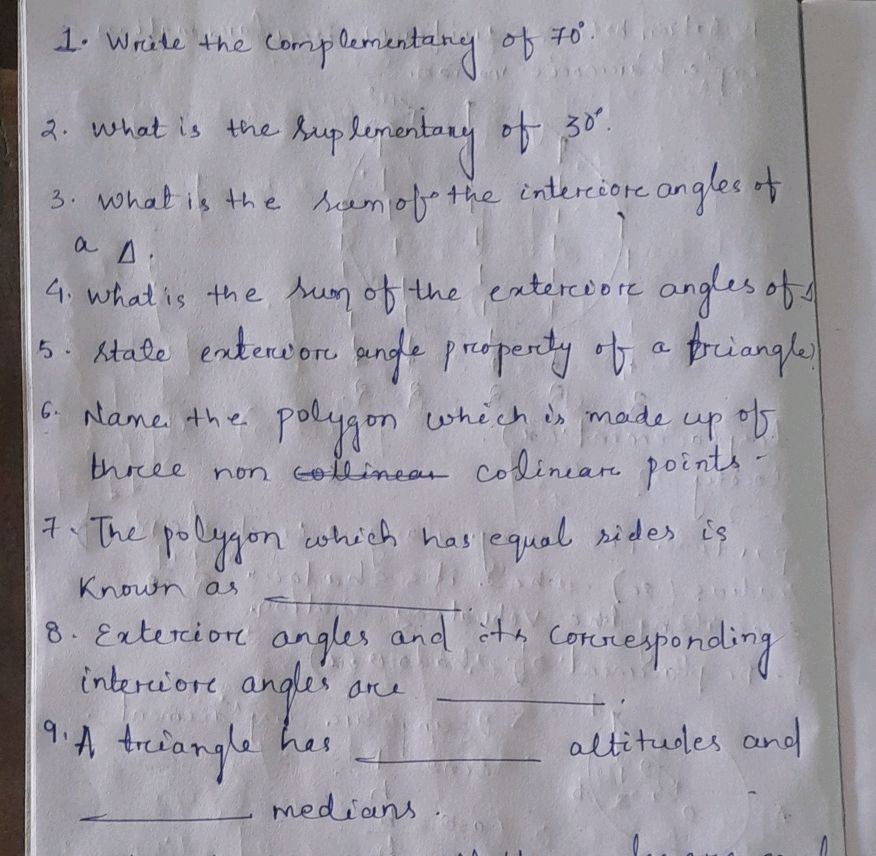 1. Write the complementary of 70°.
2. What is the suplementary of 30°.
3. What is the sum of the interiore angles of
a Δ.
4. What is the sum of the exteriore angles of Δ
5. State exterior angle property of a triangle)
6. Name the polygon which is made up of
three non collinear colinear points -
7. The polygon which has equal sides is
Known as __________.
8. Exteriore angles and its corresponding
interiore angles are __________.
9. A triangle has __________ altitudes and
__________ medians.